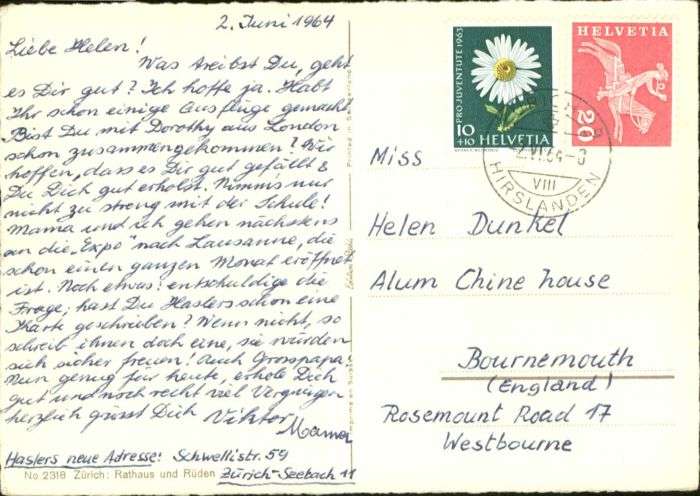 2. Juni 1964
Liebe Helen!
Was treibst Du, geht
es Dir gut? Ich hoffe ja. Habt
Ihr schon einige Ausflüge gemacht
Bist Du mit Dorothy aus London
schon zusammengekommen? Wir
hoffen, dass es Dir gut gefällt &
Du Dich gut erholst. Nimm's nur
nicht zu streng mit der Schule!
Mama und ich gehen nächstens
an die "Expo" nach Lausanne, die
schon einen ganzen Monat eröffnet
ist. Noch etwas: entschuldige die
Frage; hast Du Haslers schon eine
Karte geschrieben? Wenn nicht, so
schreib ihnen doch eine, sie würden
sich sicher freuen! Auch Grosspapa!
Nun genug für heute, erhole Dich
gut und noch recht viel Vergnügen
herzlich grüsst Dich Viktor
Mama
Haslers neue Adresse: Schwellistr. 59
Zürich-Seebach 11
No. 2318 Zürich: Rathaus und Rüden
PRO JUVENTUTE 1963
10
+10 HELVETIA
HELVETIA
20
VIII
HIRSLANDEN
Miss
Helen Dunkel
Alum Chine house
Bournemouth
(England)
Rosemount Road 17
Westbourne